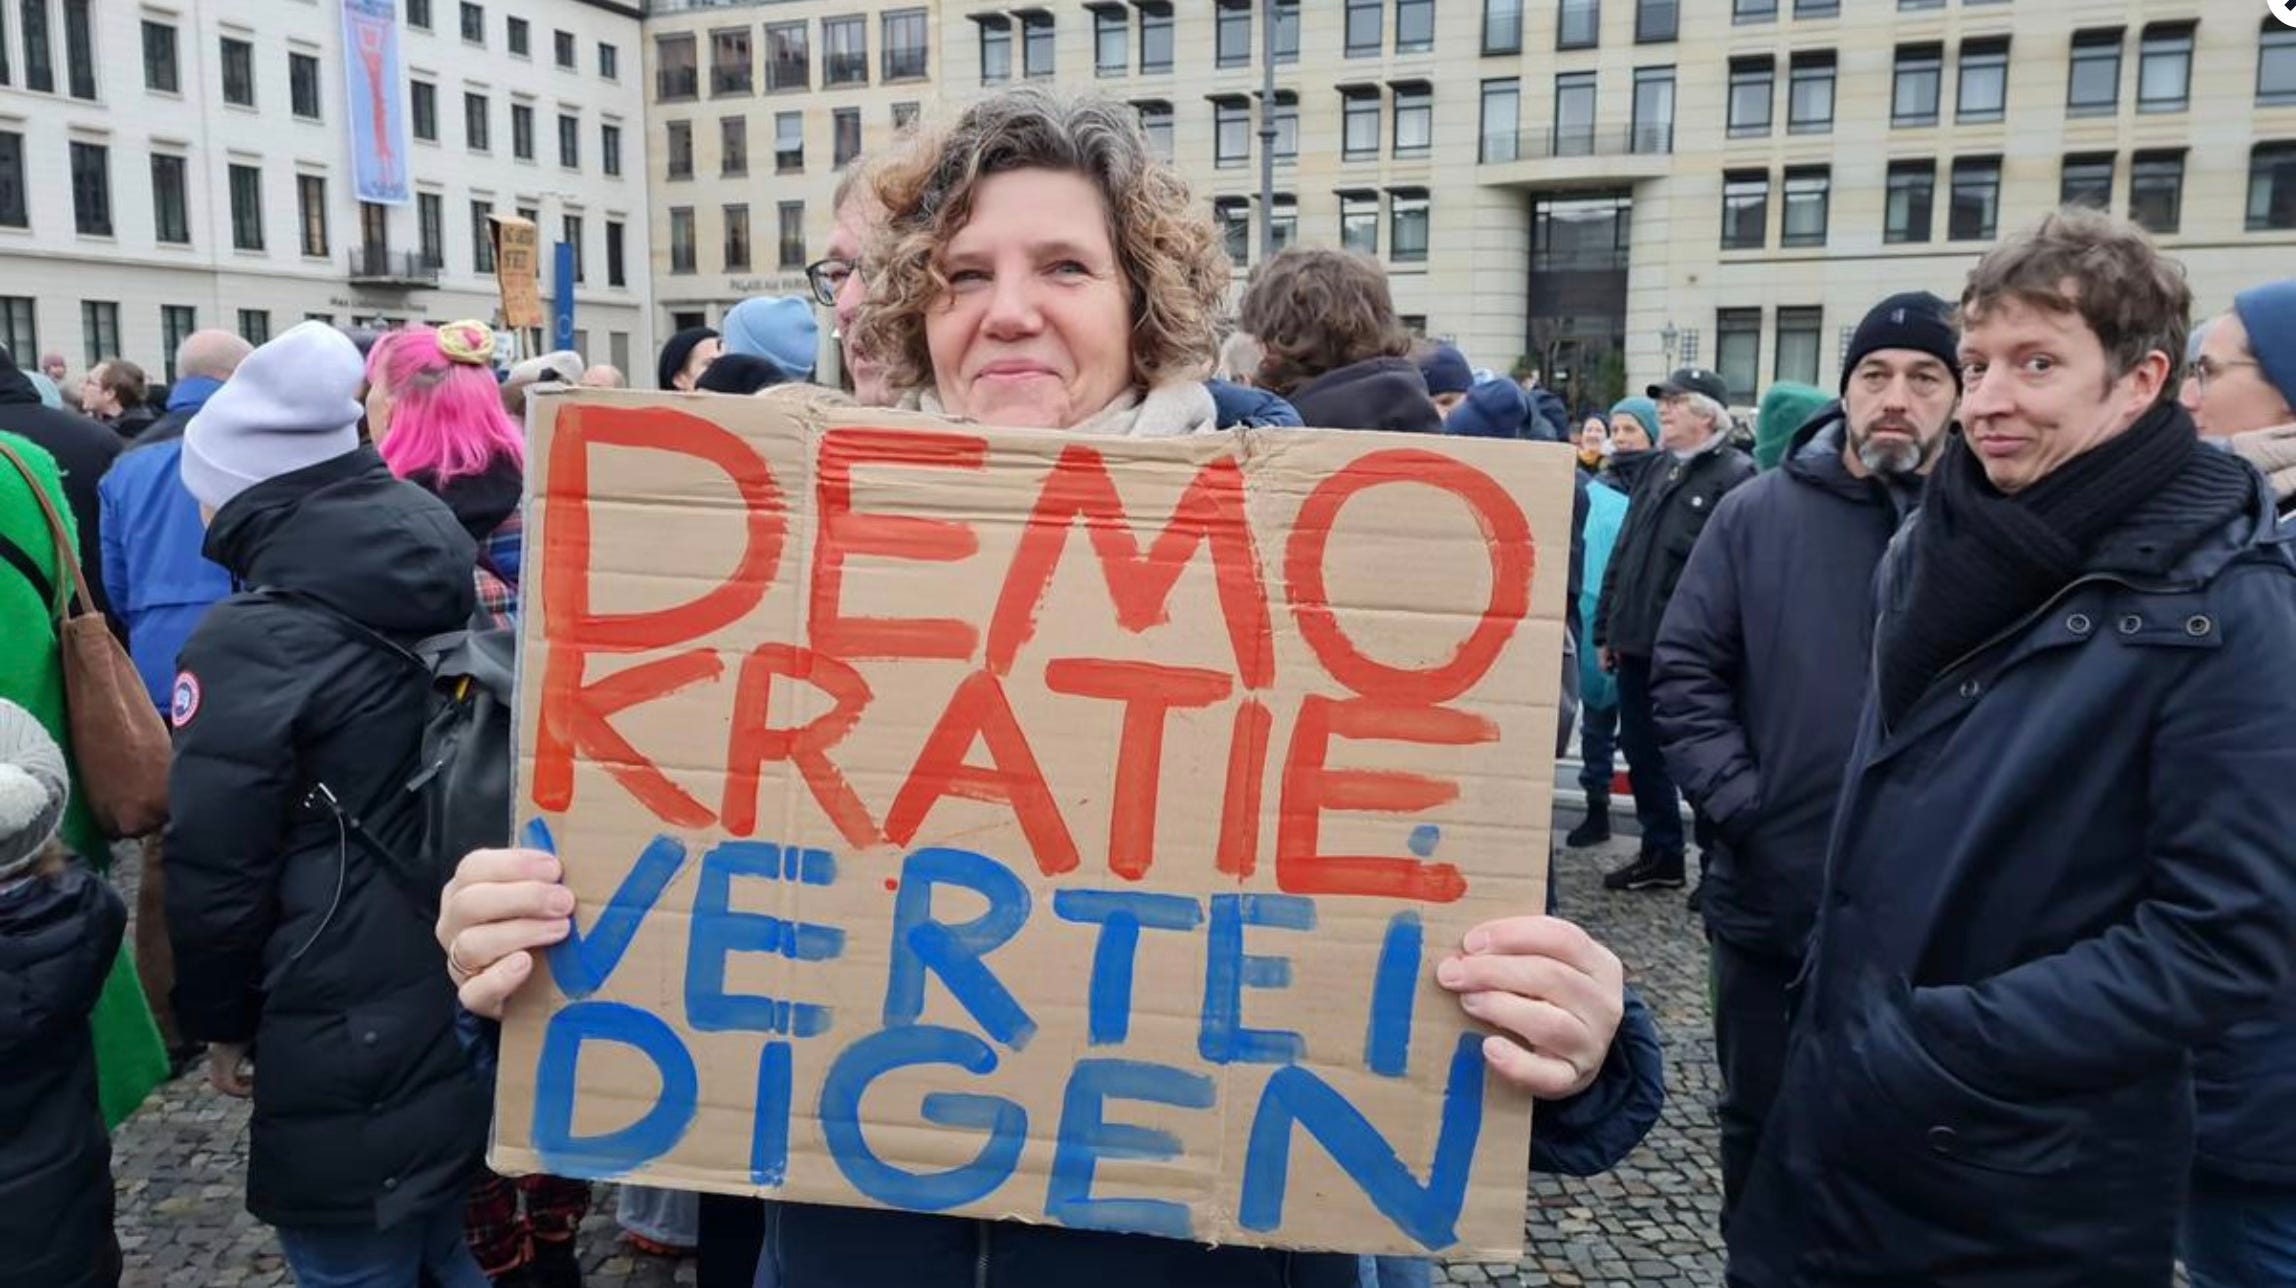 DEMO
KRATIE
VERTEI
DIGEN